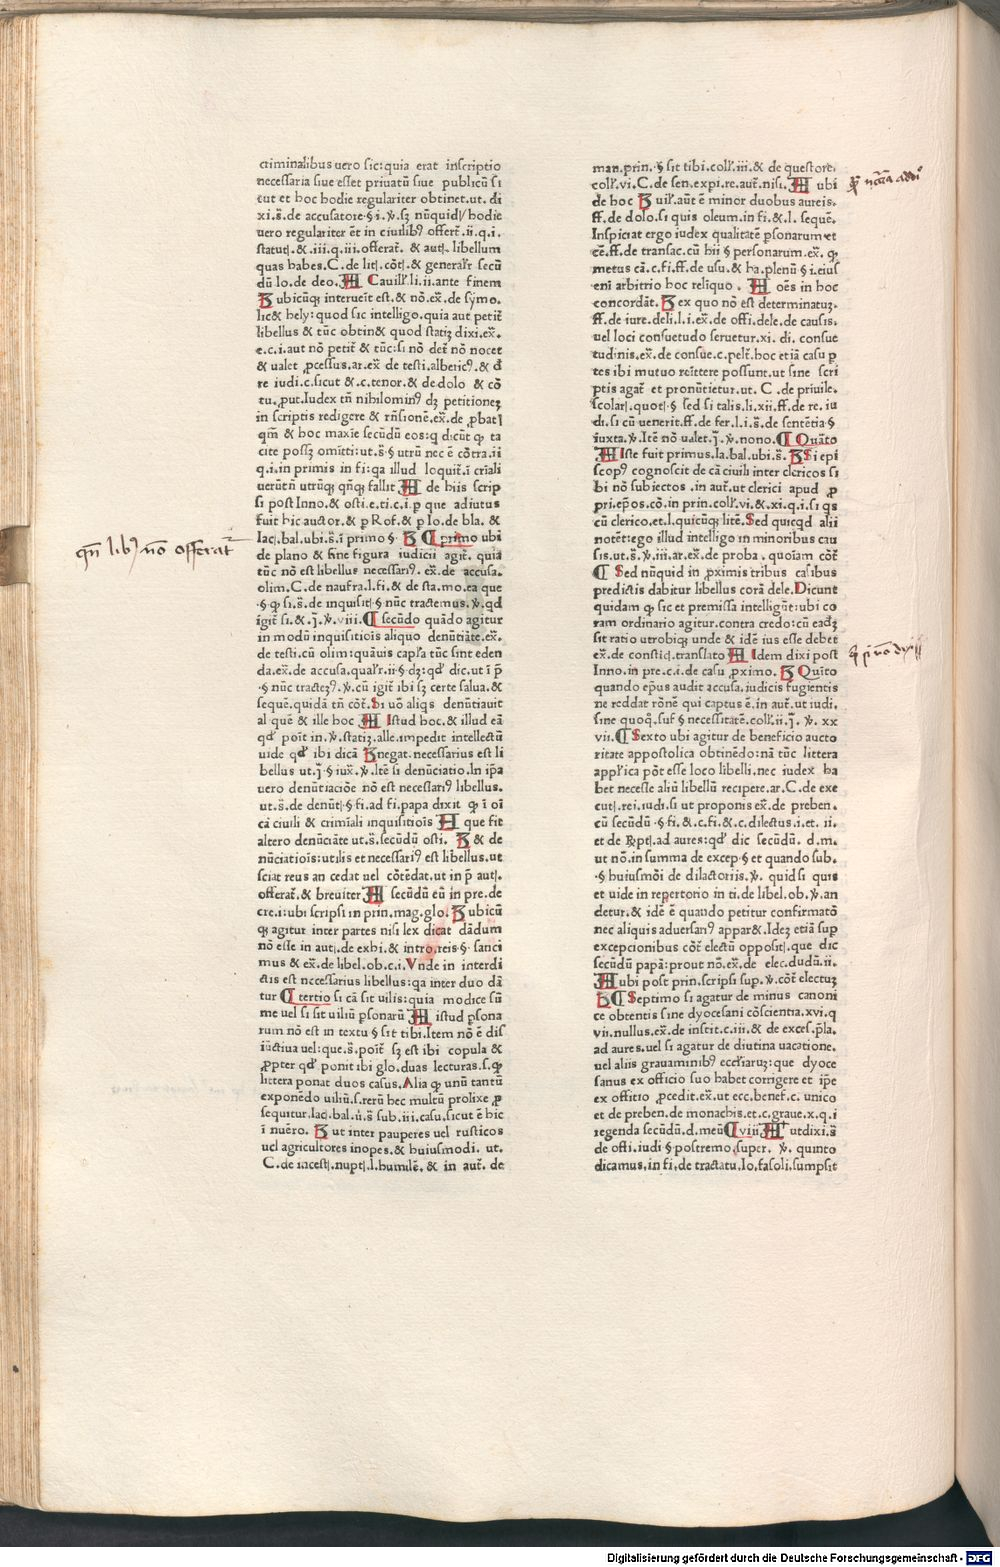 criminalibus uero sic: quia erat inscriptio
necessaria siue esset priuatū siue publicū si
cut et hoc hodie regulariter obtinet. ut. di
xi. s̄. de accusatore § i. ꝟ. sꝫ nūquid / hodie
uero regulariter ēt in ciuilibꝰ offert̄. ii. q. i.
statut. & .iii. q. iii. offerat̄. & aut. libellum
quas habes. C. de lit. cōt. & generalr̄ secū
dū Io. de deo. Cauill. li. ii. ante finem
ubicūqꝫ interueīt est. & nō. ex̄. de symo.
lic& hely: quod sic intelligo. quia aut petit̄
libellus & tūc obtin& quod statiꝫ dixi. ex̄.
e. c. i. aut nō petit̄ & tūc: si nō det̄ nō nocet
& ualet ꝓcessus. ar. ex̄ de testi. albericꝰ. & d̄
re iudi. c. sicut & .c. tenor. & de dolo & cō
tu. ꝓut. Iudex tn̄ nihilominꝰ dꝫ petitioneꝫ
in scriptis redigere & rn̄sionē. ex̄. de ꝓbat
qm̄ & hoc maxīe secūdū eos: q dicūt ꝙ ta
cite possꝫ omitti: ut. s̄. § utrū nec ē cōtra. ii
q. i. in primis in fi: qa illud loquit̄. ī crīali
uerūtn̄ utrūqꝫ qn̄qꝫ fallit de hiis scrip
si post Inno. & osti. e. ti. c. i. p que adiutus
fuit hic auctor. & p Rof. & p Io. de bla. &
Iac. bal. ubi. s̄. ī primo § ¶ primo ubi
de plano & sine figura iudicii agit̄. quia
tūc nō est libellus necessariꝰ. ex̄. de accusa.
olim. C. de naufra. l. fi. & de sta. mo. ea que
§ ꝙ si. s̄. de inquisit § nūc tractemus. ꝟ. qd
igit̄ si. & .j. ꝟ. viii. ¶ secūdo quādo agitur
in modū inquisitiōis aliquo denūtiāte. ex̄.
de testi. cū olim: quāuis capl̄a tūc sint eden
da. ex̄. de accusa. qualr̄. ii. § dꝫ: qd̄ dic. ut ī p̄
§ nūc tracteꝫ. ꝟ. cū igit̄ ibi sꝫ certe salua. &
seque. quidā tn̄ cōt̄. Si uō aliqs denūtiauit
al quē & ille hoc Istud hoc. & illud eā
qd̄ poīt in. ꝟ. statiꝫ. alle. impedit intellectū
uide qd̄ ibi dicā negat. necessarius est li
bellus ut. j̄. § iux̄. ꝟ. Itē si denūciatio. In ip̄a
uero denūtiaciōe nō est necessariꝰ libellus.
ut. s̄. de denūt. § fi. ad fi. papa dixit ꝙ ī oī
cā ciuili & crimīali inquisitiōis que fit
altero denūciāte ut. s̄. secūdū osti. & de
nūciatiōis: utilis et necessariꝰ est libellus. ut
sciat reus an cedat uel cōtēdat. ut in p̄ aut.
offerat̄. & breuiter secūdū eū in pre. de
cre. i: ubi scripsi in prin. mag. glo. ubicū
qꝫ agitur inter partes nisi lex dicat dādum
nō esse in aut. de exhi. & intro. reis. § sanci
mus & ex̄. de libel. ob. c. i. Vnde in interdi
ctis est necessarius libellus: qa inter duo dā
tur ¶ tertio si cā sit uilis: quia modice sū
me uel si sit uiliū ꝑsonarū istud ꝑsona
rum nō est in textu § sit tibi. Item nō ē dis
iūctiua uel: que. s̄. poīt sꝫ est ibi copula &
ꝓpter qd̄ ponit ibi glo. duas lecturas. s. ꝙ
littera ponat duos casus. Alia ꝙ unū tantū
exponēdo uiliū. s. rerū hec multū prolixe ꝓ
sequitur. Iac. bal. u. s̄ sub. iii. casu. sicut ē hic
ī nuēro. ut inter pauperes uel rusticos
uel agricultores inopes. & huiusmodi. ut.
C. de incest. nupt. l. humilē. & in aut̄. de
qn̄ lib̄ nō offerat̄
man. prin. § sit tibi. coll. iii. & de questore.
coll. vi. C. de sen. expi. re. aut̄. nisi. ubi
de hoc uil. aūt ē minor duobus aureis.
ff. de dolo. si quis oleum. in fi. & l. sequē.
Inspiciat ergo iudex qualitatē ꝑsonarum et
cē. ff. de transac. cū hii § personarum. ex̄. ꝙ
metus cā. c. fi. ff. de usu. & ha. plenū § i. eius
eni arbitrio hoc reliquo. oēs in hoc
concordāt. ex quo nō est determinatuꝫ.
ff. de iure. deli. l. i. ex̄. de offi. dele. de causis.
uel loci consuetudo seruetur. xi. di. consue
tudinis. ex̄. de consue. c. pelt. hoc etiā casu p
tes ibi mutuo reīttere possunt. ut sine scri
ptis agat̄ et pronūtietur. ut. C. de priuile.
scolar. quot. § sed si talis. li. xii. ff. de re. iu
di. si cū uenerit. ff. de fer. l. i. s̄. de sentētia §
iuxta. ꝟ. Itē nō ualet. j̄. ꝟ. nono. ¶ Quāto
Iste fuit primus. Ia. bal. ubi. s̄. Si epi
scopꝰ cognoscit de cā ciuili inter clericos si
bi nō subiectos. in aut̄. ut clerici apud ꝓ
pri. ep̄os. cō. in prin. coll. vi. & xi. q. i. si qs
cū clerico. et. l. quicūqꝫ litē. Sed quicqd alii
notēt: ego illud intelligo in minoribus cau
sis. ut. s̄. ꝟ. iii. ar. ex̄. de proba. quoīam cōt̄
¶ Sed nūquid in ꝓximis tribus casibus
predictis dabitur libellus corā dele. Dicunt
quidam ꝙ sic et premissa intelligūt: ubi co
ram ordinario agitur. contra credo: cū eadꝫ
sit ratio utrobiqꝫ unde & idē ius esse debet
ex̄. de constit. translato Idem dixi post
Inno. in pre. c. i. de casu ꝓximo. Quīto
quando ep̄us audit accusa. iudicis fugientis
ne reddat rōnē qui captus ē. in aut̄. ut iudi.
sine quoqꝫ. suf § necessitatē. coll. ii. j̄. ꝟ. xx
vii. ¶ Sexto ubi agitur de beneficio aucto
ritate appostolica obtinēdo: nā tūc littera
appl̄ica pōt esse loco libelli. nec iudex ha
bet necesse aliū libellū recipere. ar. C. de exe
cut. rei. iudi. si ut proponis ex̄. de preben.
cū secūdū § fi. & .c. fi. & .c. dilectus. i. et. ii.
et de Rpt. ad aures: qd̄ dic secūdū. d. m.
ut nō. in summa de excep. § et quando sub.
§ huiusmōi de dilactoriis. ꝟ. quid si quis
et uide in repertorio in ti. de libel. ob. ꝟ. an
detur. & idē ē quando petitur confirmatō
nec aliquis aduersariꝰ appar&. Idez etiā sup
excepcionibus cōt̄ electū opposit. que dic
secūdū papā: prout nō. ex̄. de elec. dudū. ii.
ubi post prin. scripsi sup. ꝟ. cōt̄ electuꝫ
¶ Septimo si agatur de minus canoni
ce obtentis sine dyocesani cōscientia. xvi. q
vii. nullus. ex̄. de instit. c. iii. & de exces. p̄la.
ad aures. uel si agatur de diutina uacatione.
uel aliis grauaminibꝰ eccl̄iaruꝫ: que dyoce
sanus ex officio suo habet corrigere et ip̄e
ex offitio ꝓcedit. ex̄. ut ecc. benef. c. unico
et de preben. de monachis. et. c. graue. x. q. i
regenda secūdū. d. meū ¶ viii. ut dixi. s̄
de offi. iudi § postremo. super. ꝟ. quinto
dicamus. in fi. de tractatu. Io. fasoli. sumpsit
Digitalisierung gefördert durch die Deutsche Forschungsgemeinschaft - DFG